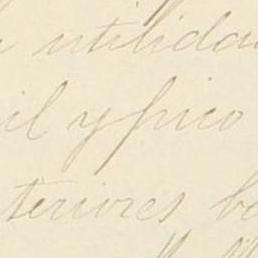 utilida
il y pico
teriores ba